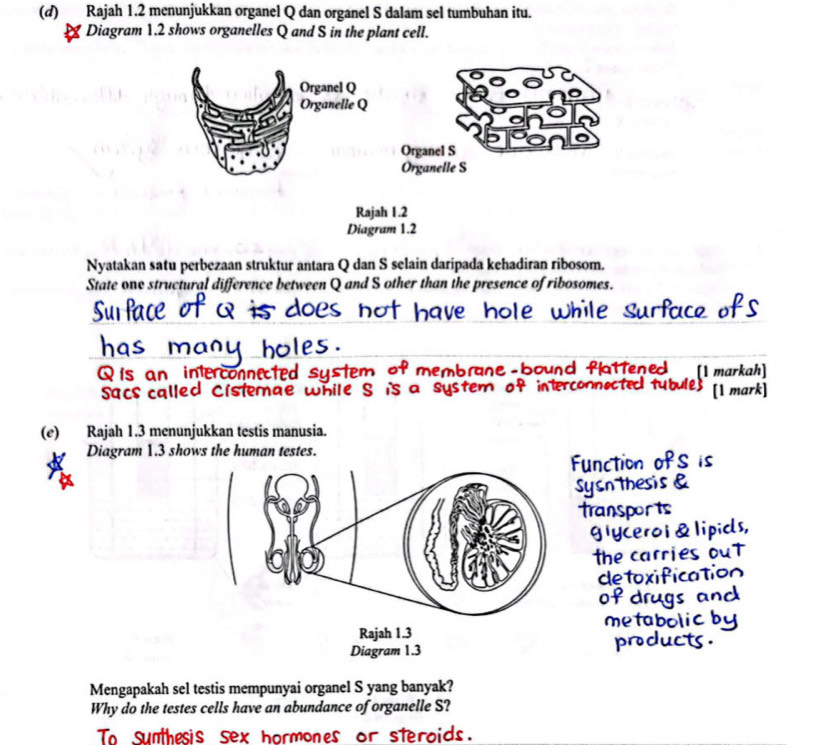 (d) Rajah 1.2 menunjukkan organel Q dan organel S dalam sel tumbuhan itu.
Diagram 1.2 shows organelles Q and S in the plant cell.
Organel Q
Organelle Q
Organel S
Organelle S
Rajah 1.2
Diagram 1.2
Nyatakan satu perbezaan struktur antara Q dan S selain daripada kehadiran ribosom.
State one structural difference between Q and S other than the presence of ribosomes.
Surface of Q is does not have hole while surface of S
has many holes.
Q is an interconnected system of membrane-bound flattened [1 markah]
sacs called cisternae while S is a system of interconnected tubules [1 mark]
(e) Rajah 1.3 menunjukkan testis manusia.
Diagram 1.3 shows the human testes.
Function of S is
sysnthesis &
transports
glycerol & lipids,
the carries out
detoxification
of drugs and
metabolic by
products.
Rajah 1.3
Diagram 1.3
Mengapakah sel testis mempunyai organel S yang banyak?
Why do the testes cells have an abundance of organelle S?
To synthesis sex hormones or steroids.